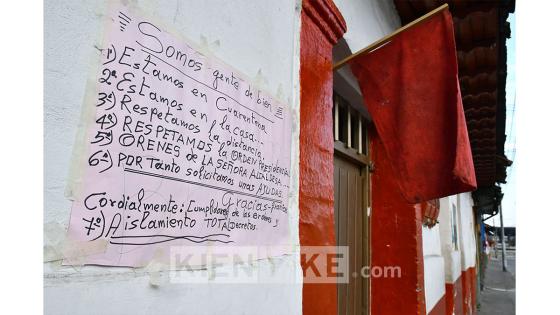 Somos gente de bien
1ª) Estamos en Cuarentena
2ª Estamos en la casa...
3ª) Respetamos la distancia
4ª) RESPETAMOS la ORDEN PRESIDENCIAL
5ª) ORENES de la SEÑORA ALCALDESA...
6ª) POR tanto solicitamos unas AYUDAS
Gracias
Cordialmente: Cumplidores de las ordenes y
7ª) Aislamiento TOTAL Decretos.
KIENYKE.com